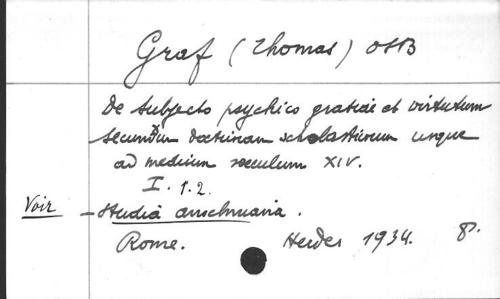 Graf (Thomas) OSB
De subjecto psychico gratiae et virtutum
secundum doctrinam scholasticorum usque
ad medium saeculum XIV.
I. 1.2.
Voir – Studia anselmiana.
Rome. Herder 1934. 8°.